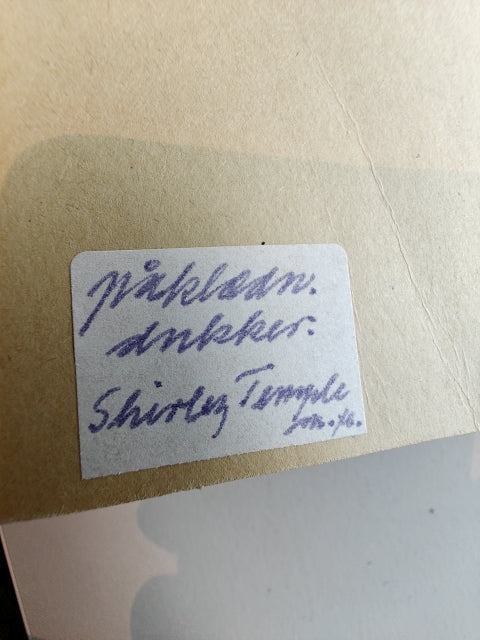 påklædn.
dukker:
Shirley Temple
m.fl.